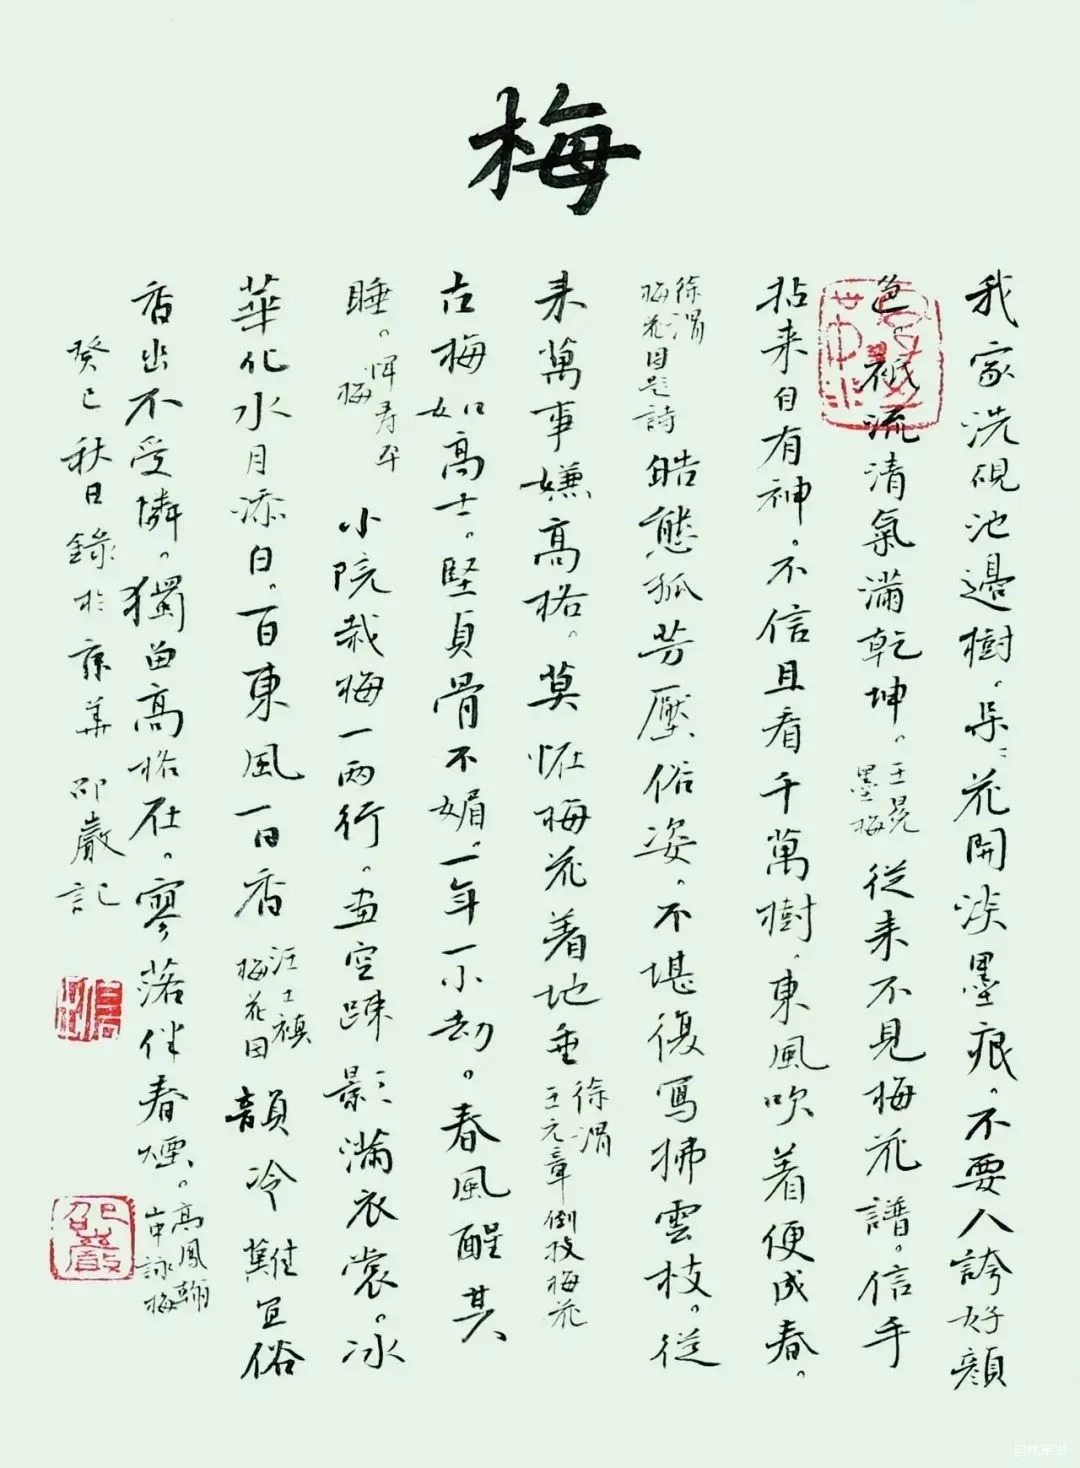 梅
我家洗硯池邊樹。朵〻花開淡墨痕。不要人誇好顏
色。祇流清氣滿乾坤。王冕墨梅 從来不見梅花譜。信手
拈来自有神。不信且看千萬樹。東風吹着便成春。
徐渭梅花图題詩 皓態孤芳壓俗姿。不堪復寫拂雲枝。從
来萬事嫌高格。莫怪梅花着地垂 徐渭王元章倒枝梅花
古梅如高士。堅貞骨不媚。一年一小劫。春風醒其
睡。惲寿平梅 小院栽梅一兩行。畫空疎影〻滿衣裳。冰
華化水月添白。一日東風一日香 汪士慎梅花图 韻冷難宜俗
香出不受憐。獨留高格在。寥落伴春煙。高鳳翰山中詠梅
癸巳秋日錄於京華 邵巖記
邵巖